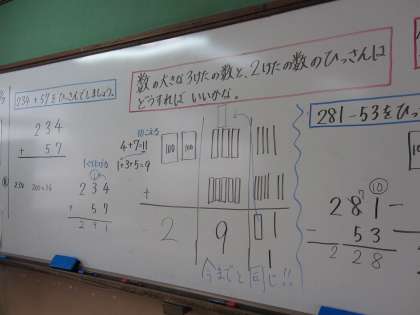 234+57をひっさんでしましょう。
234
+ 57
200
4+7=11
1+3+5=9
234
+ 57
291
数の大きな3けたの数と、2けたの数のひっさんは
どうすればいいかな。
100 100
+
2 9 1
今までと同じ!!
281-53をひっ
281
- 53
228
10